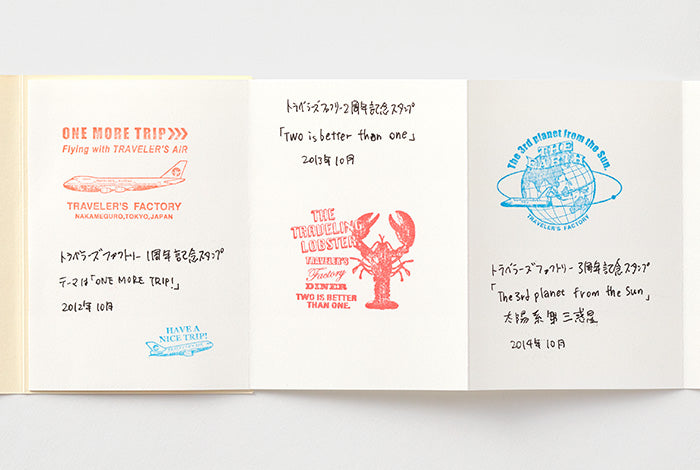 ONE MORE TRIP>>>
Flying with TRAVELER'S AIR
TRAVELER'S FACTORY
NAKAMEGURO,TOKYO,JAPAN
トラベラーズファクトリー 1周年記念スタンプ
テーマは「ONE MORE TRIP!」
2012年10月
HAVE A
NICE TRIP!
トラベラーズファクトリー2周年記念スタンプ
「Two is better than one」
2013年10月
THE
TRAVELING
LOBSTER
TRAVELER'S
Factory
DINER
TWO IS BETTER
THAN ONE.
The 3rd planet from the Sun.
THE EARTH
TRAVELER'S FACTORY
トラベラーズファクトリー3周年記念スタンプ
「The 3rd planet from the Sun」
太陽系第三惑星
2014年10月